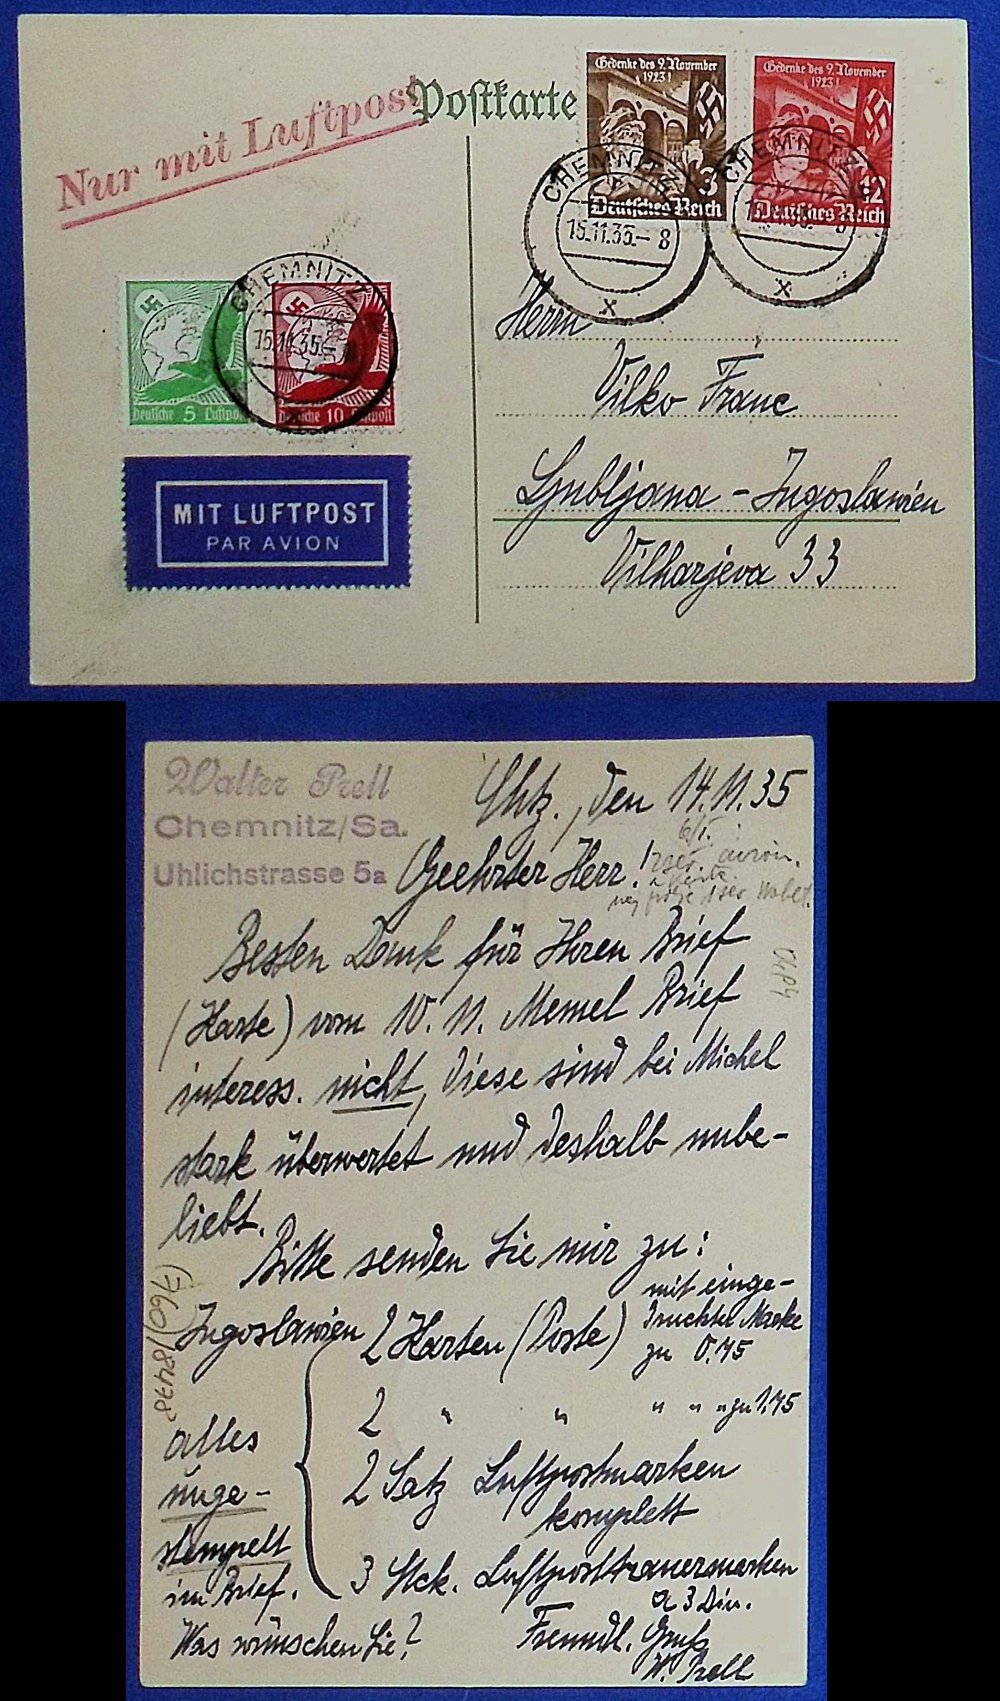 Nur mit Luftpost
Postkarte
Gedenke des 9. November
1923!
3
Deutsches Reich
Gedenke des 9. November
1923!
12
Deutsches Reich
CHEMNITZ
15.11.35.- 8
X
CHEMNITZ
15.11.35.- 8
X
CHEMNITZ
15.11.35.-
Deutsche 5 Luftpost
Deutsche 10 Luftpost
MIT LUFTPOST
PAR AVION
Herrn
Vilko Franc
Ljubljana - Jugoslawien
Vilharjeva 33
Walter Prell
Chemnitz/Sa.
Uhlichstrasse 5a
Chtz., den 14.11.35
Geehrter Herr!
6/I.
avion.
Besten Dank für Ihren Brief
(Karte) vom 10. 11. Memel Brief
interess. nicht, diese sind bei Michel
stark überwertet und deshalb unbe-
liebt.
Bitte senden Sie mir zu:
Jugoslawien 2 Karten (Poste) mit einge-
druckter Marke
zu 0.75
2 " " " " " zu 1.75
2 Satz Luftpostmarken
komplett
3 Stck. Luftposttrauermarken
a 3 Din.
alles
unge-
stempelt
im Brief.
Was wünschen Sie?
Freundl. Gruß
W. Prell
(760)/8478